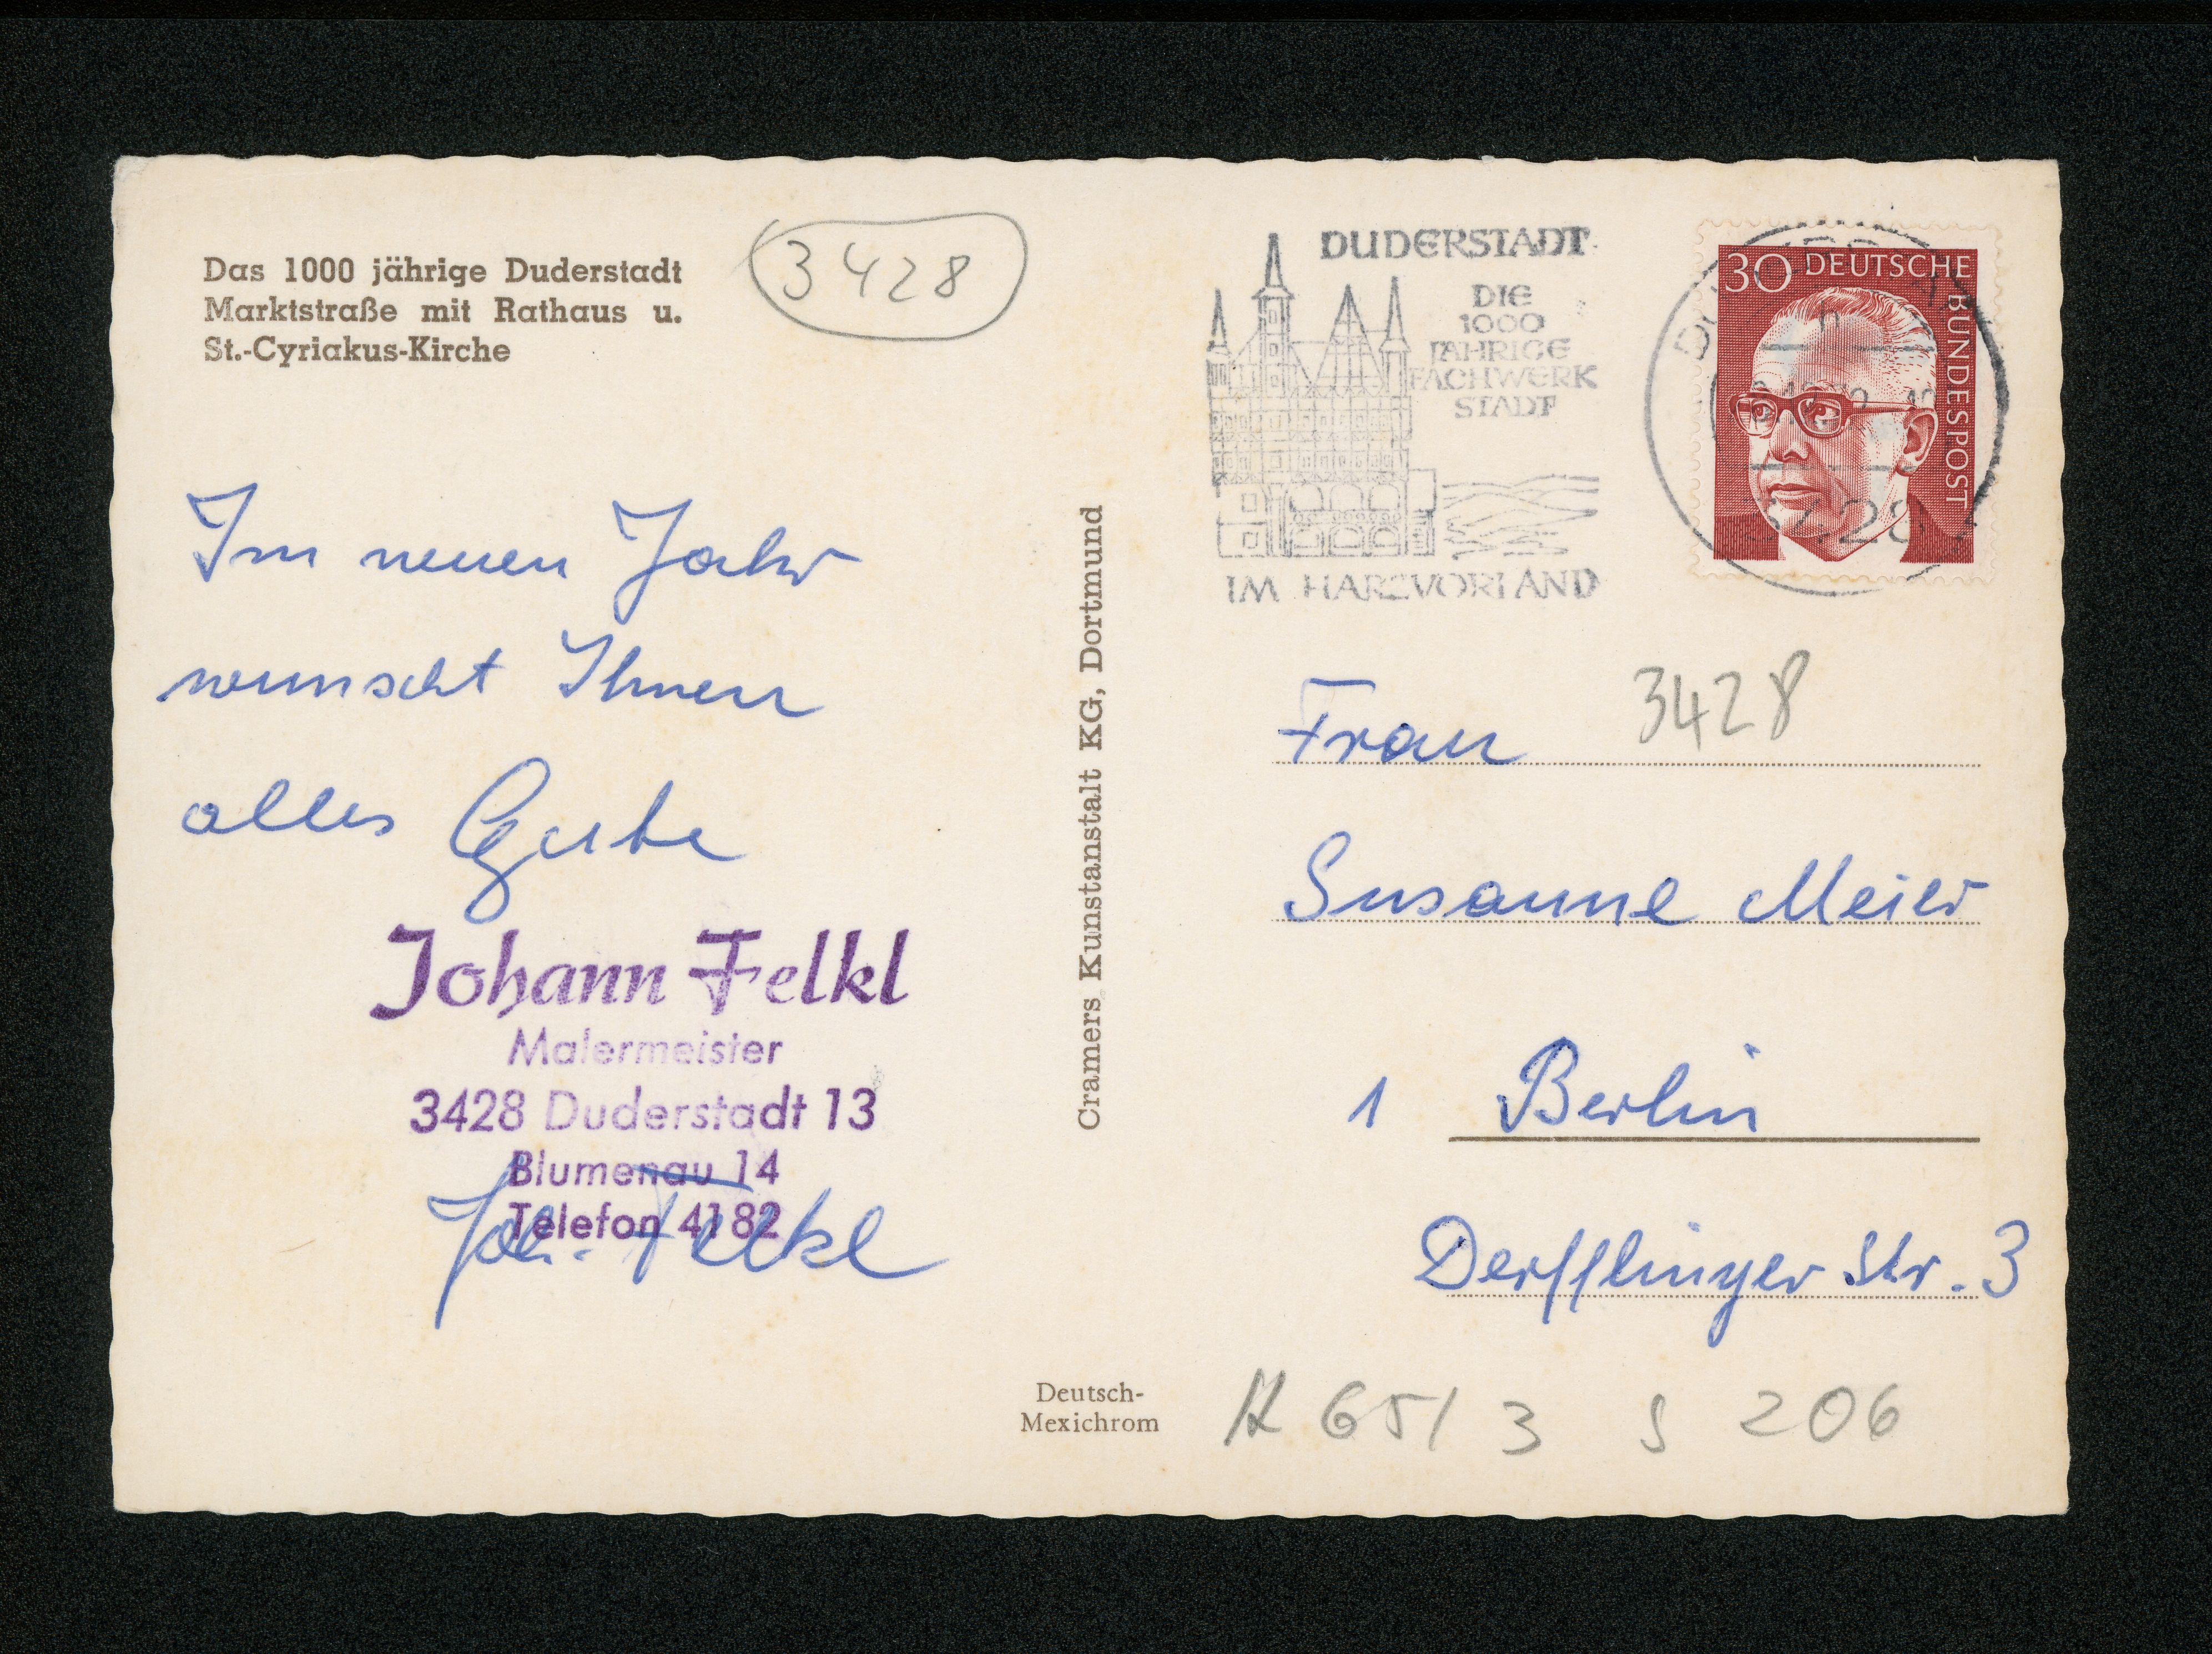 Das 1000 jährige Duderstadt
Marktstraße mit Rathaus u.
St.-Cyriakus-Kirche
3428
Im neuen Jahr
wünscht Ihnen
alles Gute
Johann Felkl
Malermeister
3428 Duderstadt 13
Blumenau 14
Telefon 4182
Joh. Felkl
Cramers Kunstanstalt KG, Dortmund
Deutsch-
Mexichrom
DUDERSTADT
DIE
1000
JÄHRIGE
FACHWERK
STADT
IM HARZVORLAND
30 DEUTSCHE
BUNDESPOST
3428
Frau 3428
Susanne Meier
1 Berlin
Derfflinger Str. 3
H 65/ 3 S 206